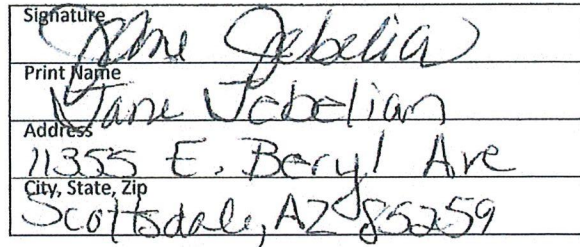 Signature
Jane Jebelia
Print Name
Jane Jebelian
Address
11355 E. Beryl Ave
City, State, Zip
Scottsdale, AZ 85259